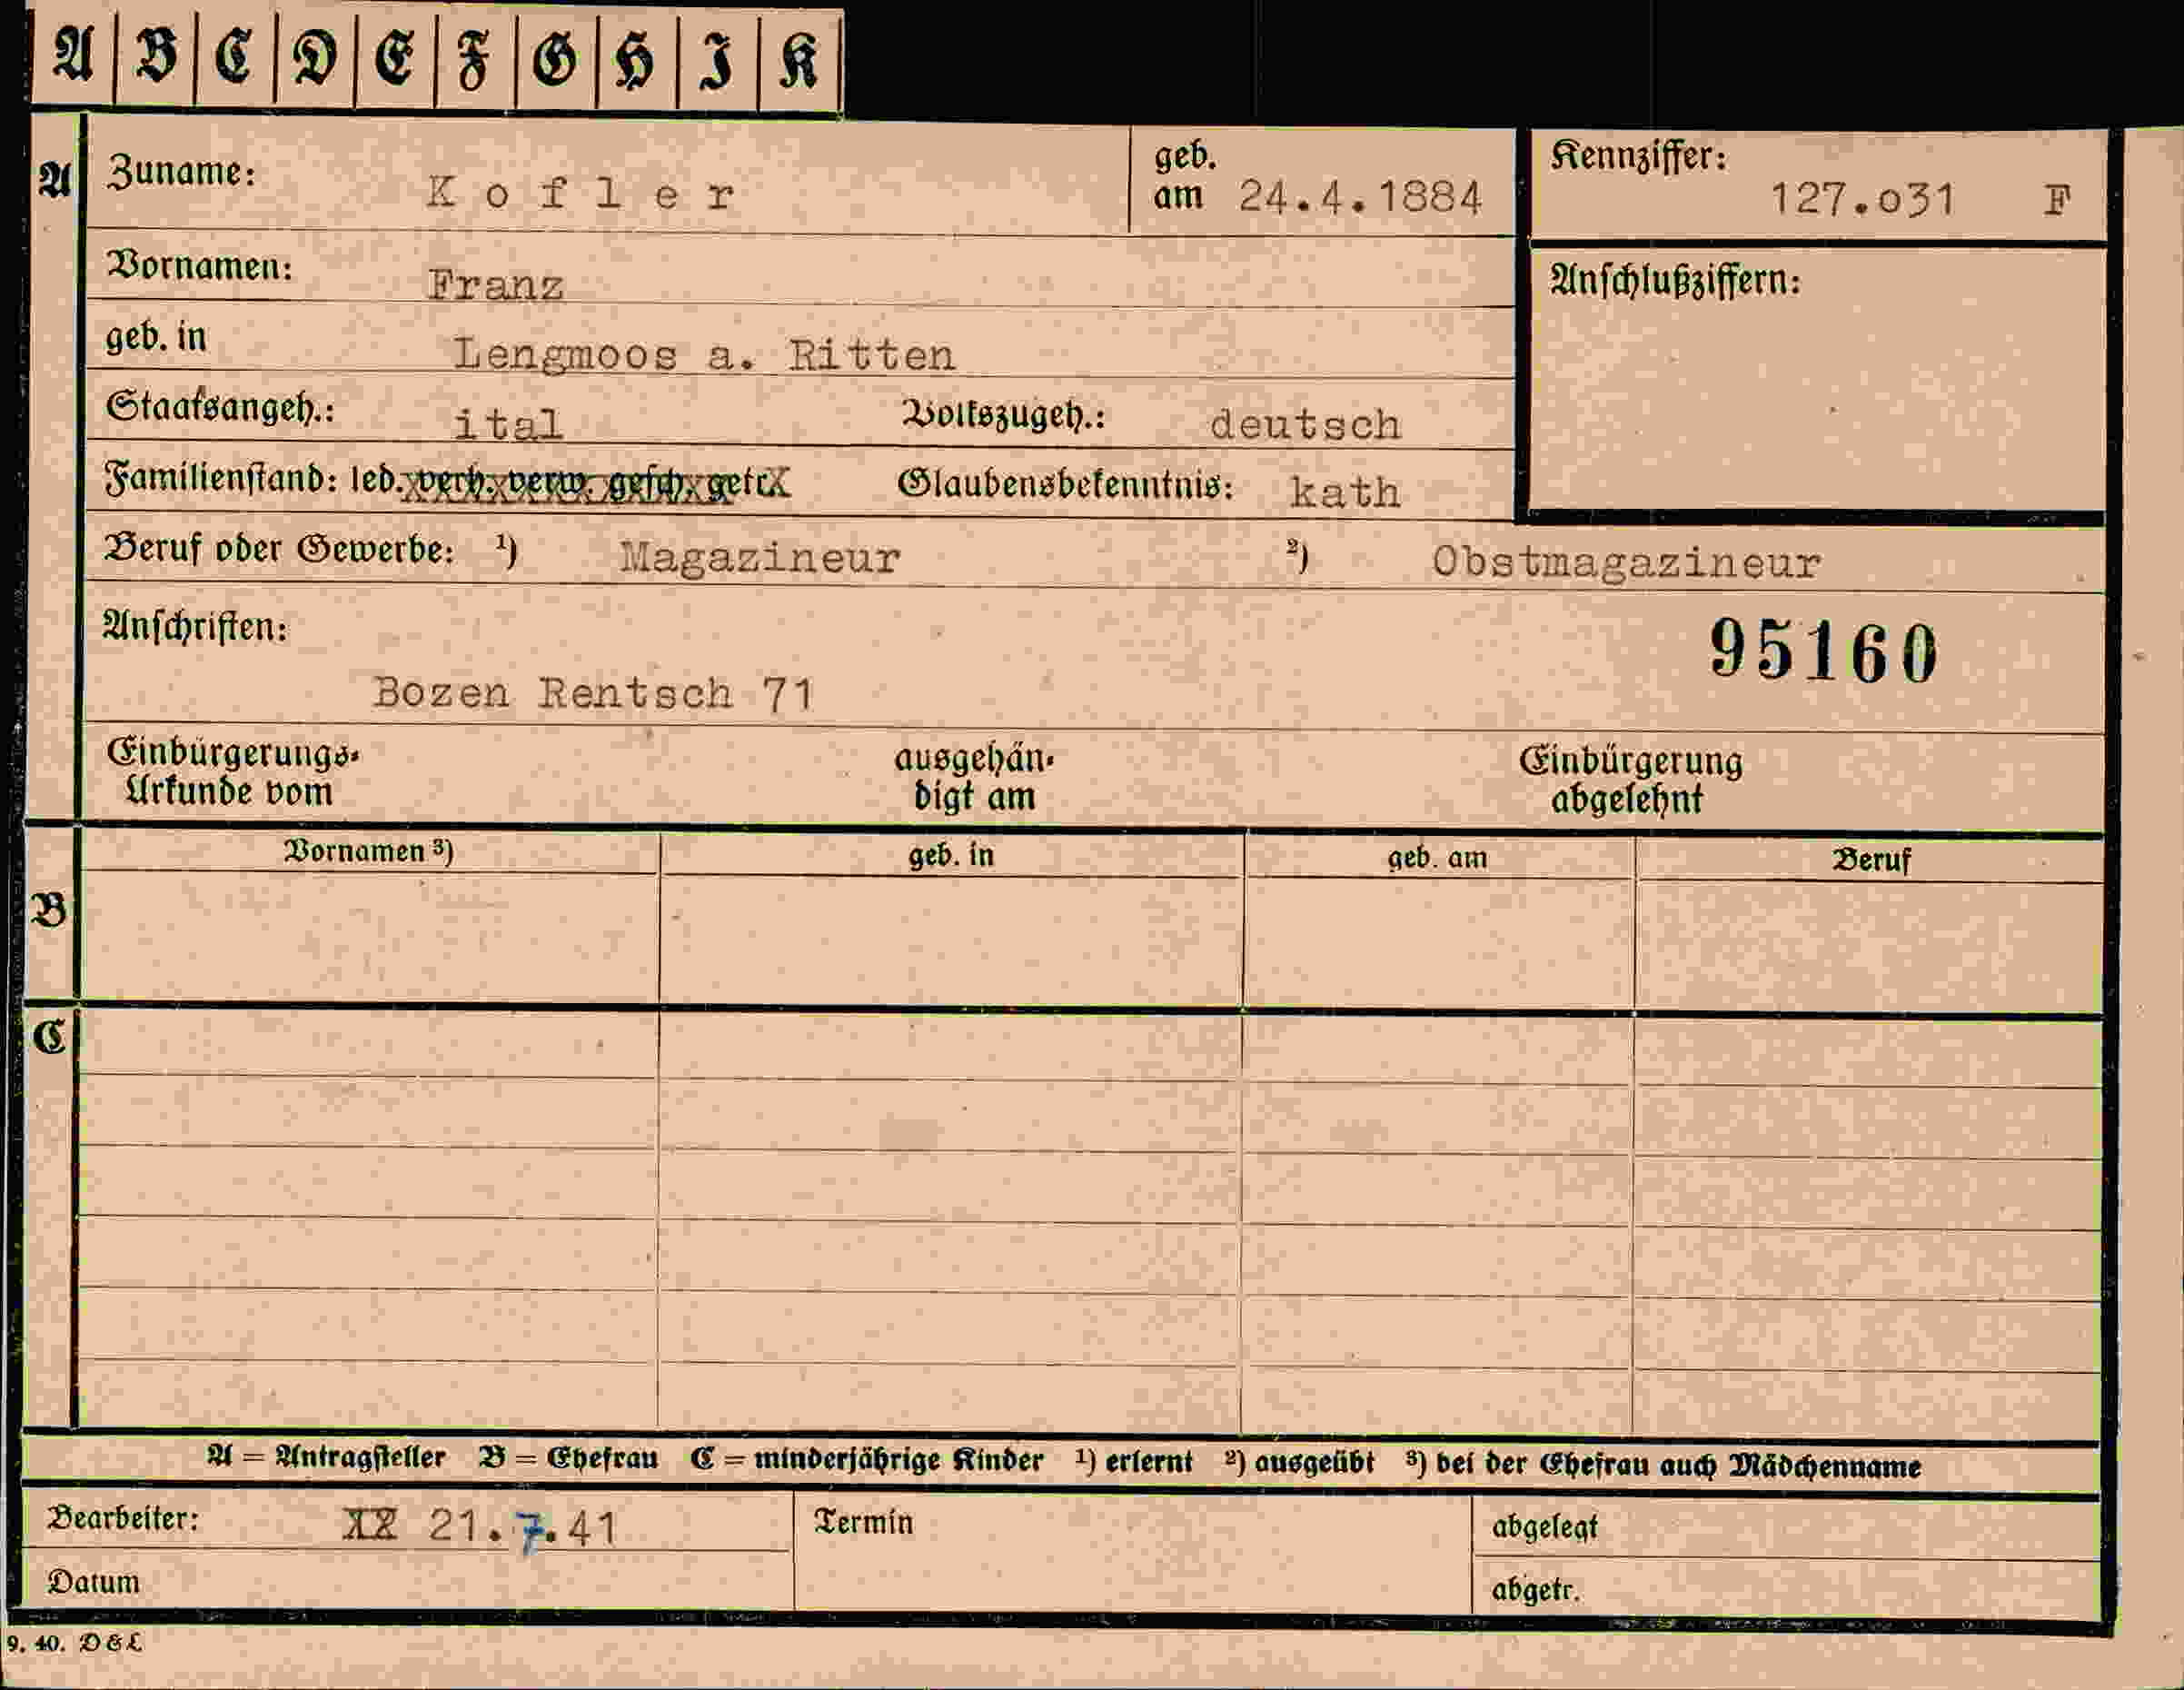 A B C D E F G H I K
A Zuname: Kofler geb. am 24.4.1884 Kennziffer: 127.o31 F
Vornamen: Franz Anschlußziffern:
geb. in Lengmoos a. Ritten
Staatsangeh.: ital Volkszugeh.: deutsch
Familienstand: led. verh. verw. gesch. getr. Glaubensbekenntnis: kath
Beruf oder Gewerbe: ¹) Magazineur ²) Obstmagazineur
Anschriften: 95160
Bozen Rentsch 71
Einbürgerungs- ausgehän- Einbürgerung
Urkunde vom digt am abgelehnt
Vornamen ³) geb. in geb. am Beruf
B
C
A = Antragsteller B = Ehefrau C = minderjährige Kinder ¹) erlernt ²) ausgeübt ³) bei der Ehefrau auch Mädchenname
Bearbeiter: 21.7.41 Termin abgelegt
Datum abgetr.
9. 40. D & L